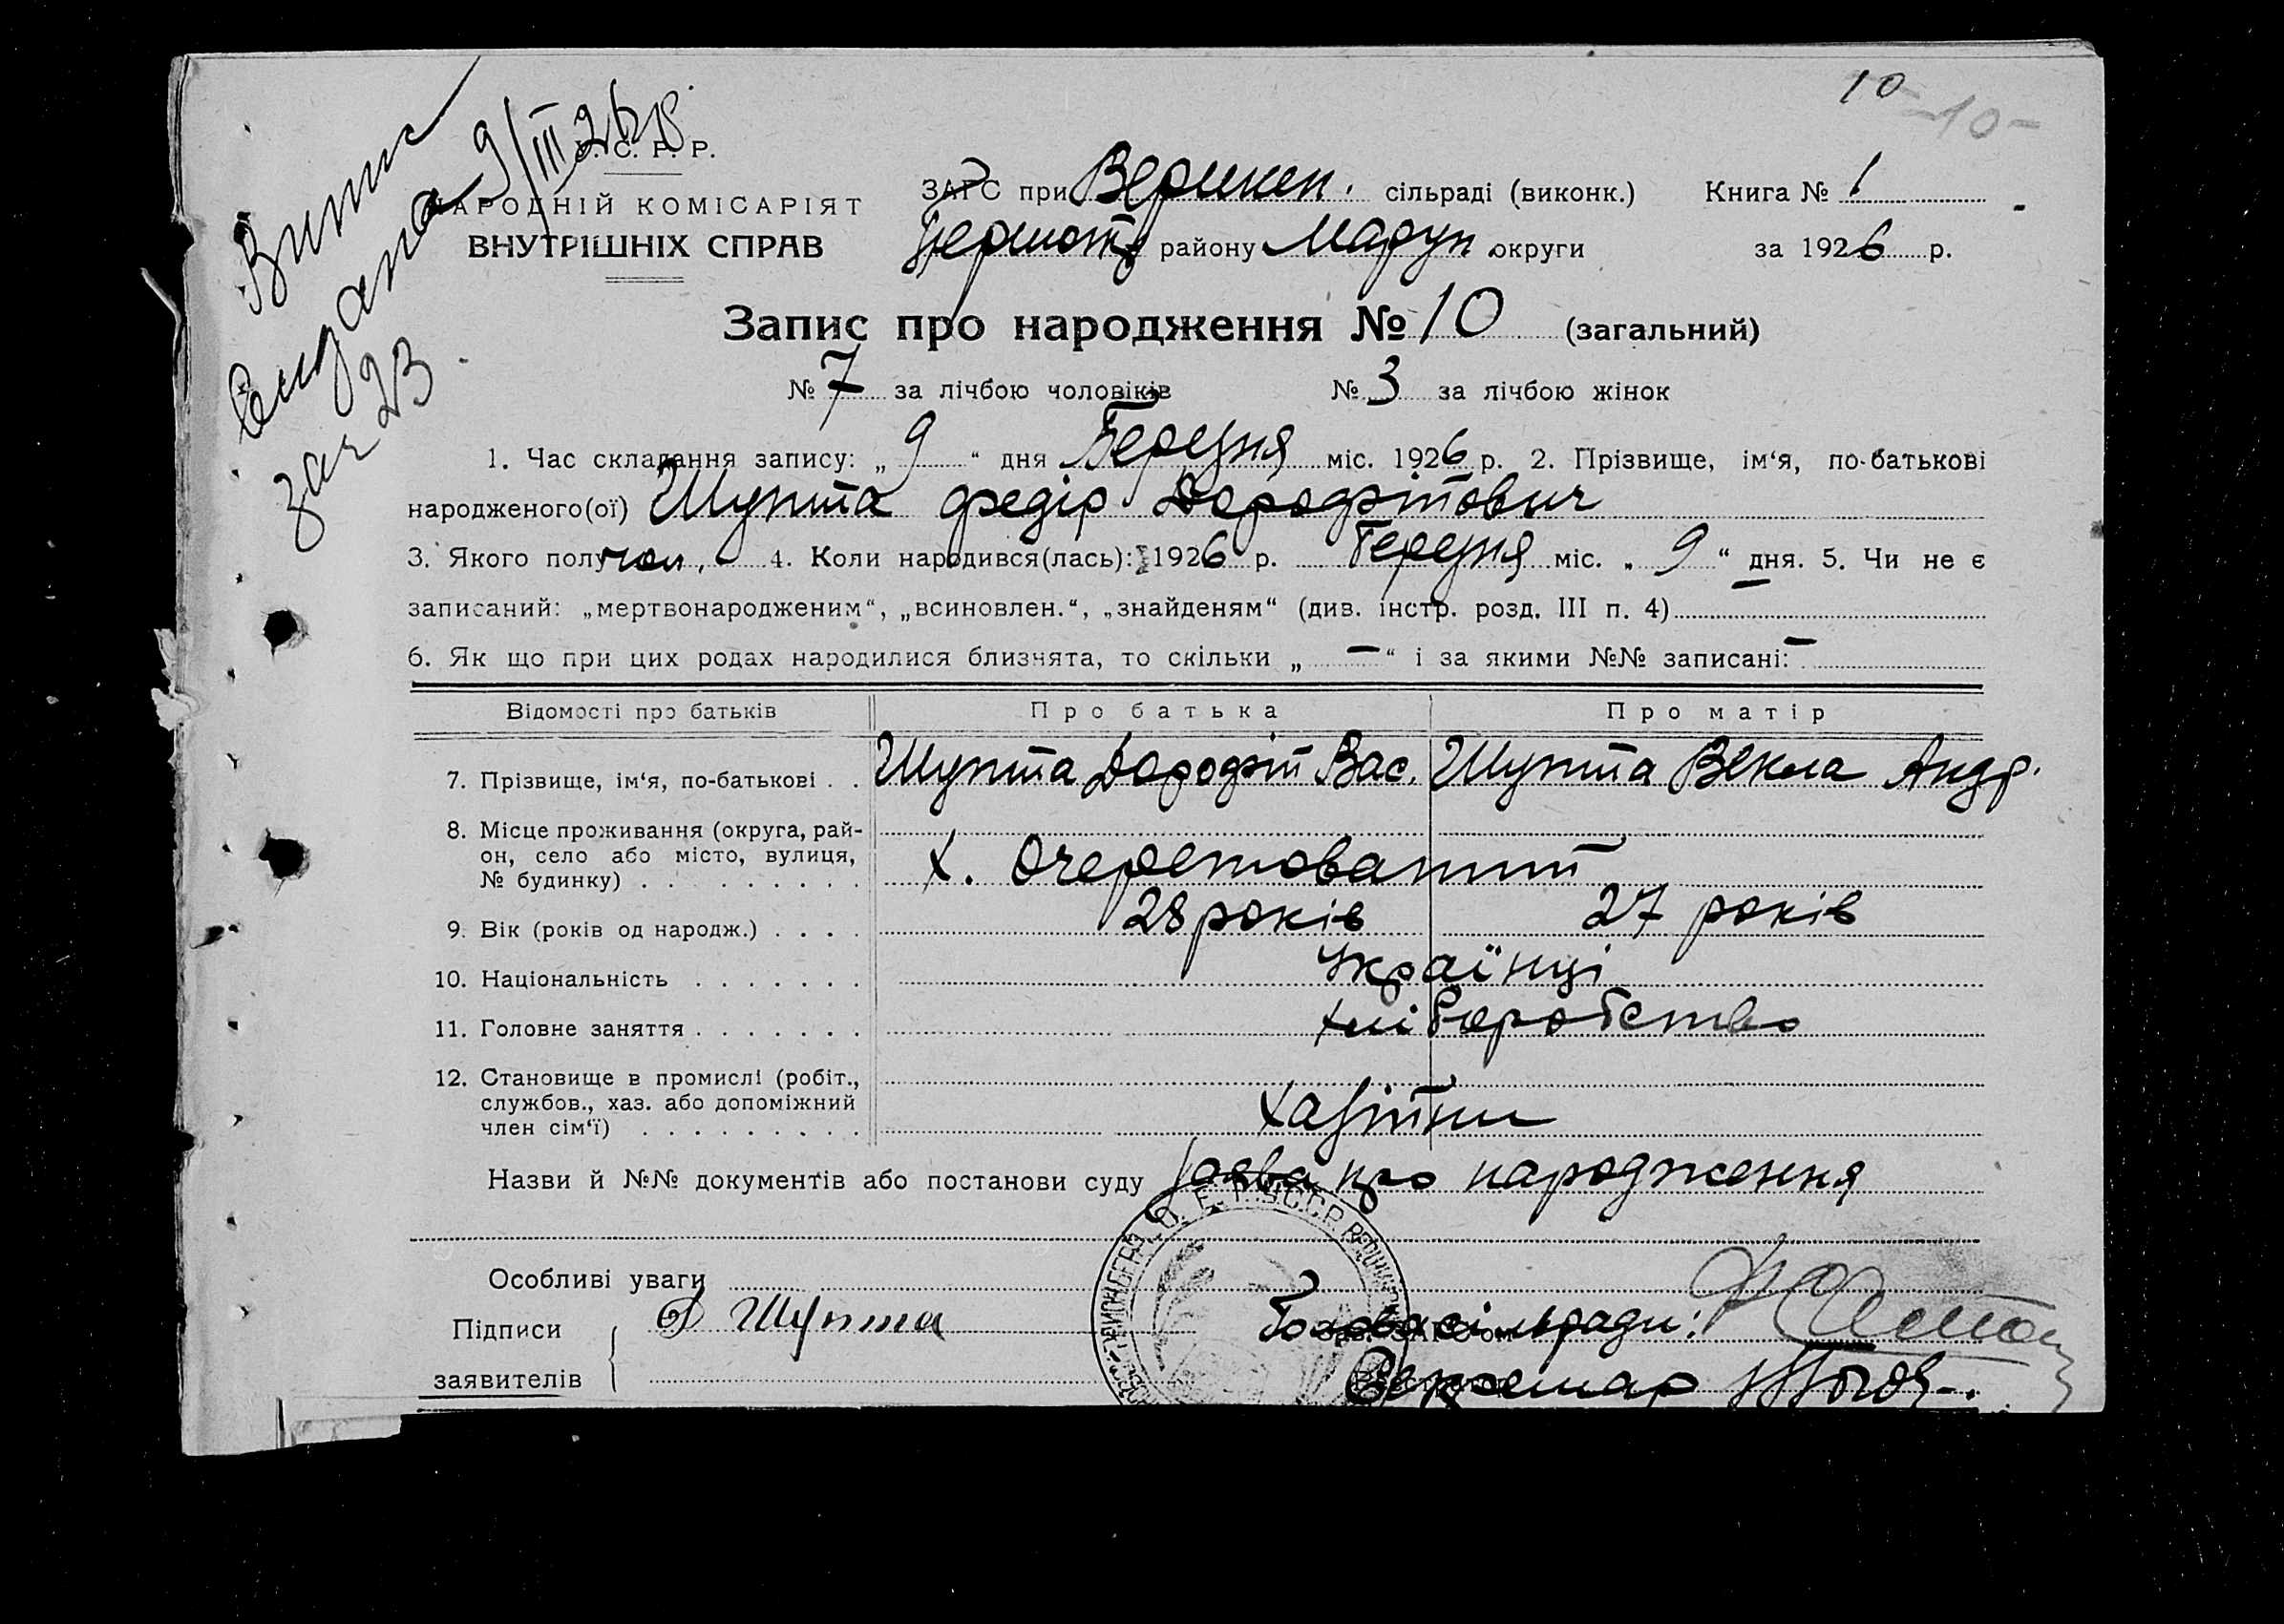 10
-10-
Випис
видана 9/III 26 р.
за ч 23
У. С. Р. Р.
НАРОДНІЙ КОМІСАРІЯТ
ВНУТРІШНІХ СПРАВ
ЗАГС при Вершкен. сільраді (виконк.) Книга № 1
району Маруп округи за 1926 р.
Запис про народження № 10 (загальний)
№ 7 за лічбою чоловіків № 3 за лічбою жінок
1. Час складання запису: „ 9 “ дня Березня міс. 1926 р. 2. Прізвище, ім‘я, по-батькові
народженого(ої) Шупта Федір Дорофітович
3. Якого полу чол. 4. Коли народився(лась): 1926 р. Березня міс. „ 9 “ дня. 5. Чи не є
записаний: „мертвонародженим“, „всиновлен.“, „знайденям“ (див. інстр. розд. III п. 4) —
6. Як що при цих родах народилися близнята, то скільки „ — “ і за якими №№ записані: —
Відомості про батьків Про батька Про матір
7. Прізвище, ім‘я, по-батькові . . Шупта Дорофіт Вас. Шупта Векла Андр.
8. Місце проживання (округа, рай-
он, село або місто, вулиця,
№ будинку) . . . . . . . . . х. Очеретоватий
9. Вік (років од народж.) . . . . 28 років 27 років
10. Національність . . . . . . . Українці
11. Головне заняття . . . . . . . хліборобство
12. Становище в промислі (робіт.,
службов., хаз. або допоміжний
член сім‘ї) . . . . . . . . . хазіїни
Назви й №№ документів або постанови суду Заява про народження
Особливі уваги
Підписи Д Шупта Голова сільради:
заявителів Секретар